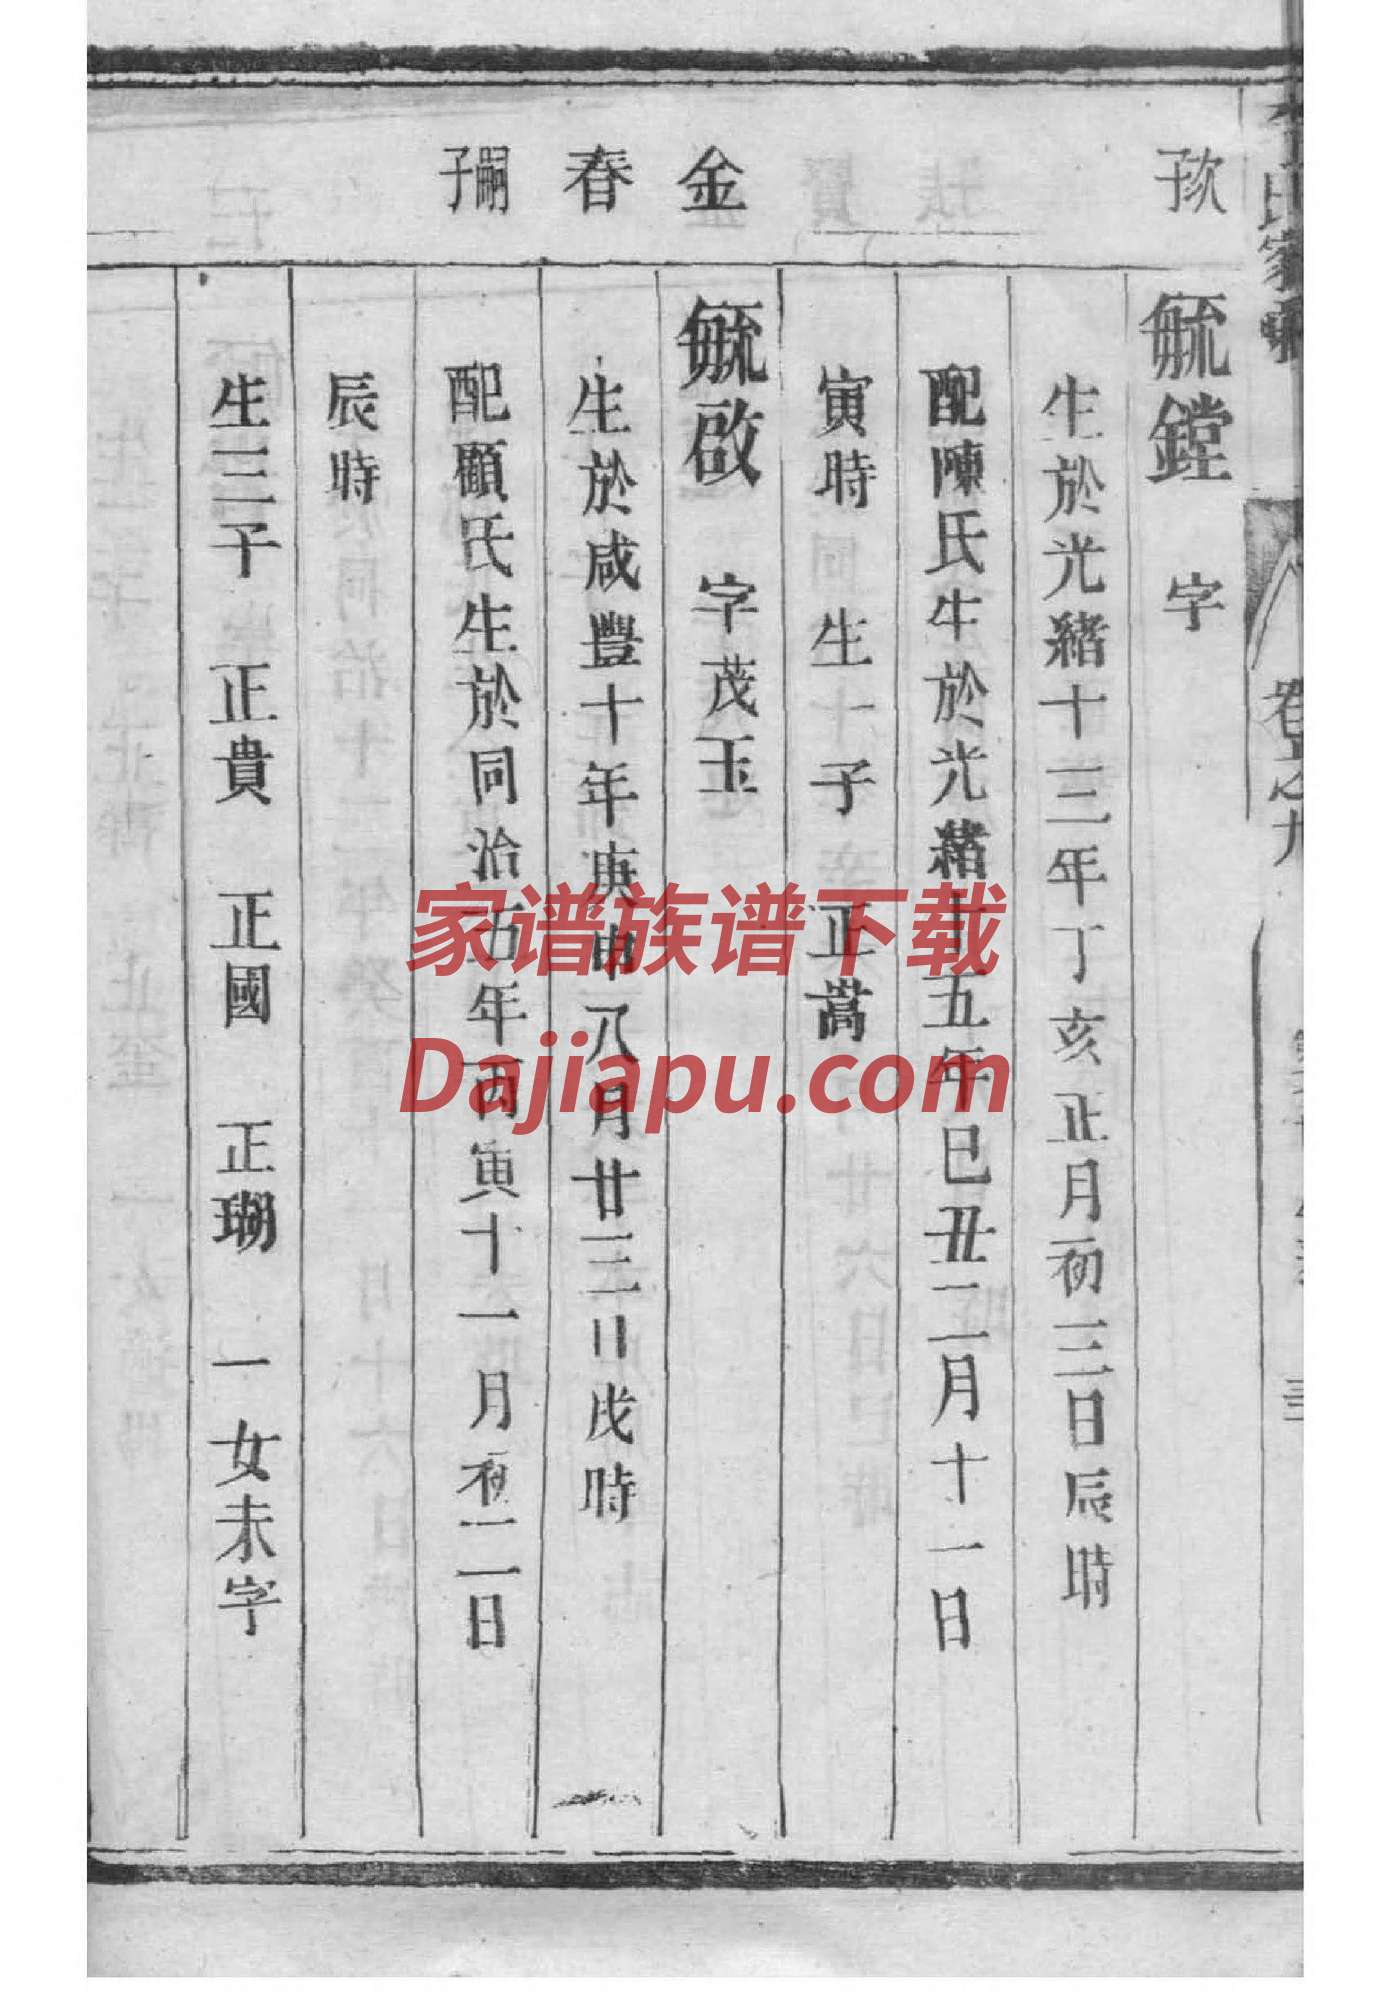 次子
毓鏜 字
生於光緒十三年丁亥正月初三日辰時
配陳氏生於光緒十五年己丑二月十一日
寅時 生一子 正蒿
金春嗣子
毓啟 字茂玉
生於咸豐十年庚申八月廿三日戌時
配顧氏生於同治五年丙寅十一月初二日
辰時
生三子 正貴 正國 正瑚 一女未字
氏家乘
卷之九
家谱族谱下载
Dajiapu.com